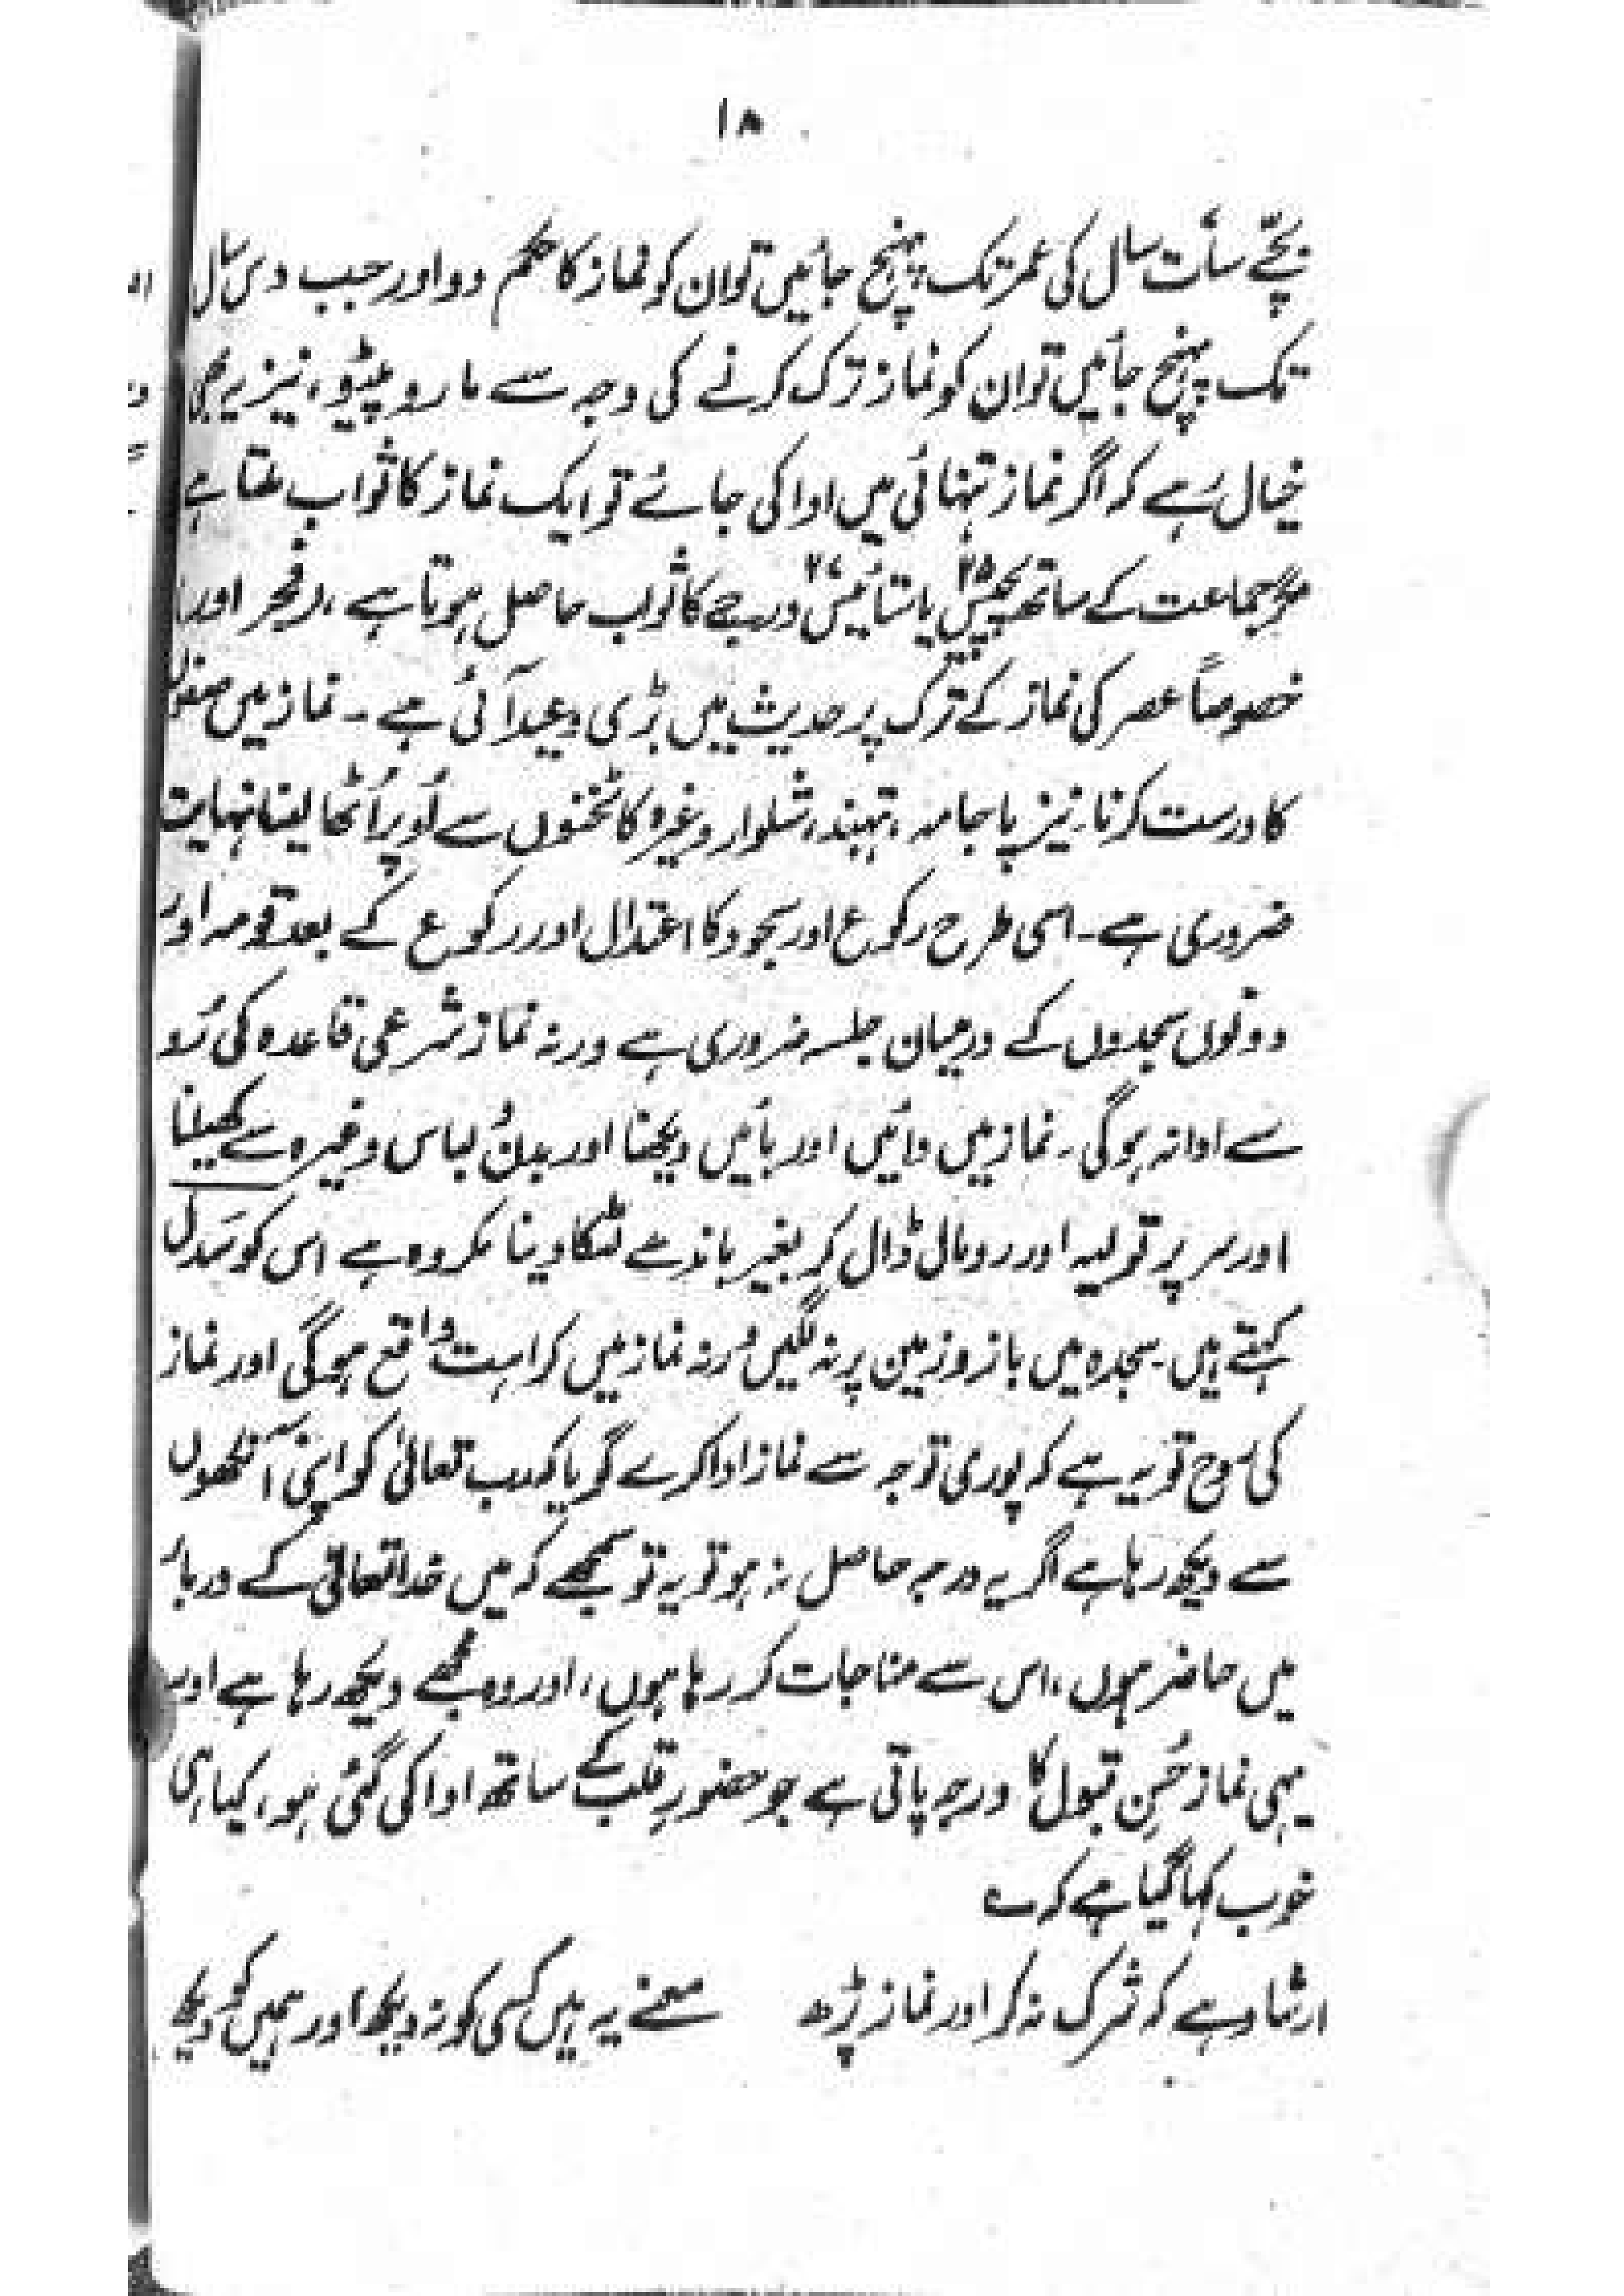 ۱۸
بچّے سات سال کی عمر تک پہنچ جائیں توان کو نماز کا حکم دو اور جب دس سال
تک پہنچ جائیں توان کو نماز ترک کرنے کی وجہ سے مارو پیٹو، نیز یہ بھی
خیال رہے کہ اگر نماز تنہائی میں ادا کی جائے تو ایک نماز کا ثواب ملتا ہے
مگر جماعت کے ساتھ پچیس ۲۵ یا ستائیس ۲۷ درجے کا ثواب حاصل ہوتا ہے، فجر اور
خصوصاً عصر کی نماز کے ترک پر حدیث میں بڑی وعید آئی ہے ۔ نماز میں صفوں
کا درست کرنا نیز پاجامہ، تہبند، شلوار وغیرہ کا ٹخنوں سے اُوپر اُٹھا لینا نہایت
ضروری ہے۔ اسی طرح رکوع اور سجود کا اعتدال اور رکوع کے بعد قومہ اور
دونوں سجدوں کے درمیان جلسہ ضروری ہے ورنہ نماز شرعی قاعدہ کی رُو
سے ادا نہ ہوگی ۔ نماز میں دائیں اور بائیں دیکھنا اور بدن لباس وغیرہ سے کھیلنا
اور سر پر تولیہ اور رومال ڈال کر بغیر باندھے لٹکا دینا مکروہ ہے اس کو سَدل
کہتے ہیں۔ سجدہ میں بازو زمین پر نہ لگیں ورنہ نماز میں کراہت واقع ہوگی اور نماز
کی روح تو یہ ہے کہ پوری توجہ سے نماز ادا کرے گویا کہ رب تعالیٰ کو اپنی آنکھوں
سے دیکھ رہا ہے اگر یہ درجہ حاصل نہ ہو تو یہ تو سمجھے کہ میں خدا تعالیٰ کے دربار
میں حاضر ہوں، اس سے مناجات کر رہا ہوں، اور وہ مجھے دیکھ رہا ہے اور
یہی نماز حُسنِ قبول کا درجہ پاتی ہے جو حضورِ قلب کے ساتھ ادا کی گئی ہو، کیا ہی
خوب کہا گیا ہے کہ ؎
ارشاد ہے کہ شرک نہ کر اور نماز پڑھ معنے یہ ہیں کسی کو نہ دیکھ اور ہمیں کو دیکھ